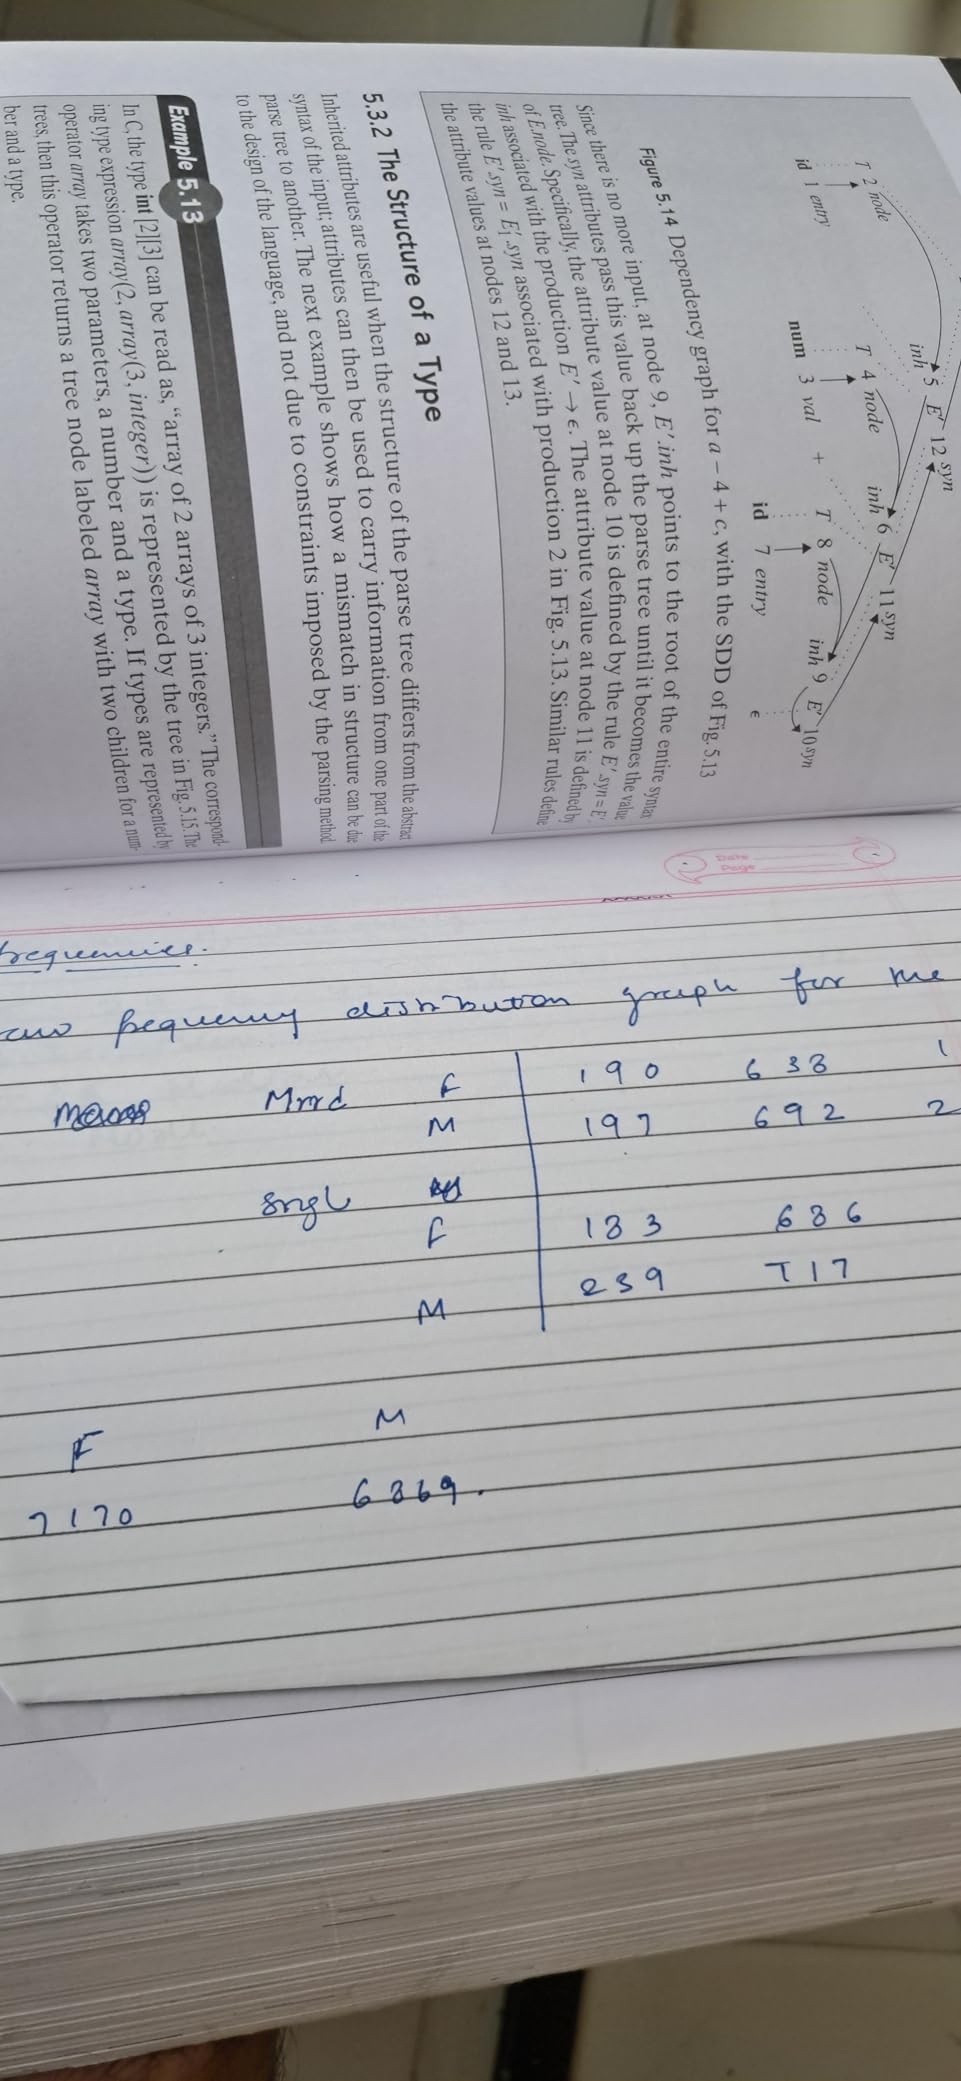 T 2 node
id 1 entry
inh 5 E' 12 syn
T 4 node
num 3 val
+
inh 6 E' 11 syn
T 8 node
id 7 entry
inh 9 E' 10 syn
ϵ
Figure 5.14 Dependency graph for a – 4 + c, with the SDD of Fig. 5.13
Since there is no more input, at node 9, E'.inh points to the root of the entire syntax
tree. The syn attributes pass this value back up the parse tree until it becomes the value
of E.node. Specifically, the attribute value at node 10 is defined by the rule E'.syn = E'.
inh associated with the production E' → ϵ. The attribute value at node 11 is defined by
the rule E'.syn = E'₁.syn associated with production 2 in Fig. 5.13. Similar rules define
the attribute values at nodes 12 and 13.
5.3.2 The Structure of a Type
Inherited attributes are useful when the structure of the parse tree differs from the abstract
syntax of the input; attributes can then be used to carry information from one part of the
parse tree to another. The next example shows how a mismatch in structure can be due
to the design of the language, and not due to constraints imposed by the parsing method.
Example 5.13
In C, the type int [2][3] can be read as, "array of 2 arrays of 3 integers." The correspond-
ing type expression array(2, array(3, integer)) is represented by the tree in Fig. 5.15. The
operator array takes two parameters, a number and a type. If types are represented by
trees, then this operator returns a tree node labeled array with two children for a num-
ber and a type.
Date
Page
frequencies.
frequency distribution graph for the
Mrrd F 190 638 1
M 197 692 2
Sngl
F 183 686
M 239 717
F M
7170 6869.